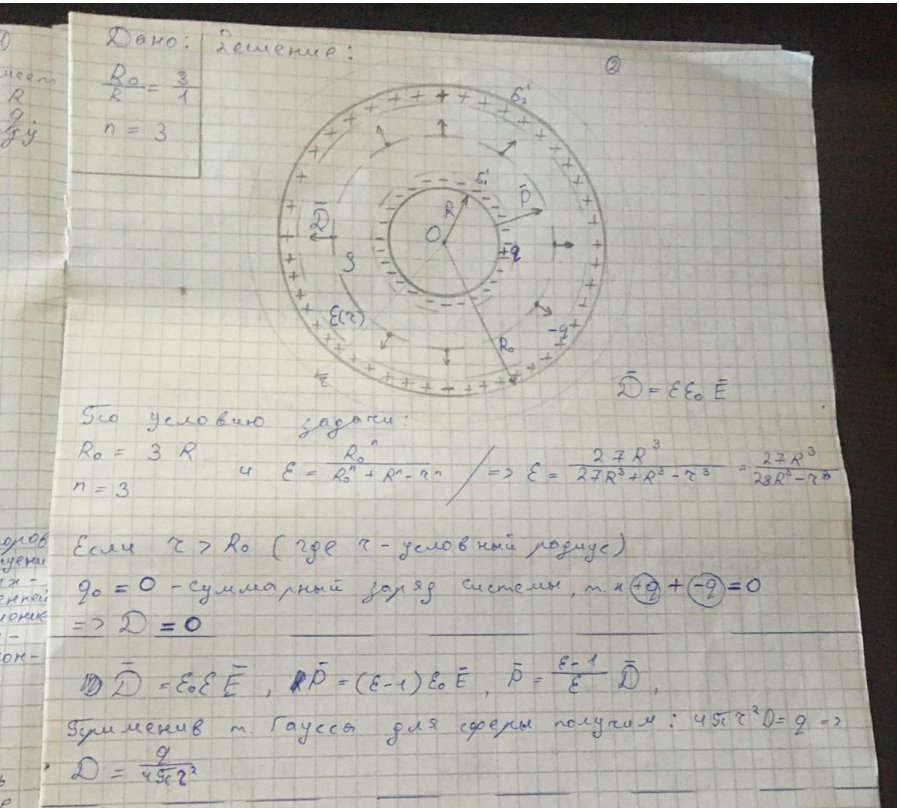 Дано:
Решение:
②
R₀/R = 3/1
n = 3
+ + + + + + + + + + σ₂'
σ₁'
R
P̄
D̄
O
+q
3
ε(r)
-q
R₀
r
D̄ = εε₀ Ē
По условию задачи:
R₀ = 3 R
n = 3
и ε = R₀ⁿ / (R₀ⁿ + Rⁿ - rⁿ) / => ε = 27R³ / (27R³ + R³ - r³) = 27R³ / (28R³ - r³)
Если r > R₀ (где r - условный радиус)
q₀ = 0 - суммарный заряд системы, т.к +q + -q = 0
=> D = 0
D̄ = ε₀ε Ē , P̄ = (ε-1) ε₀ Ē , P̄ = (ε-1)/ε D̄ ,
Применив т. Гаусса для сферы получим: 4πr²D = q =>
D = q / 4πr²